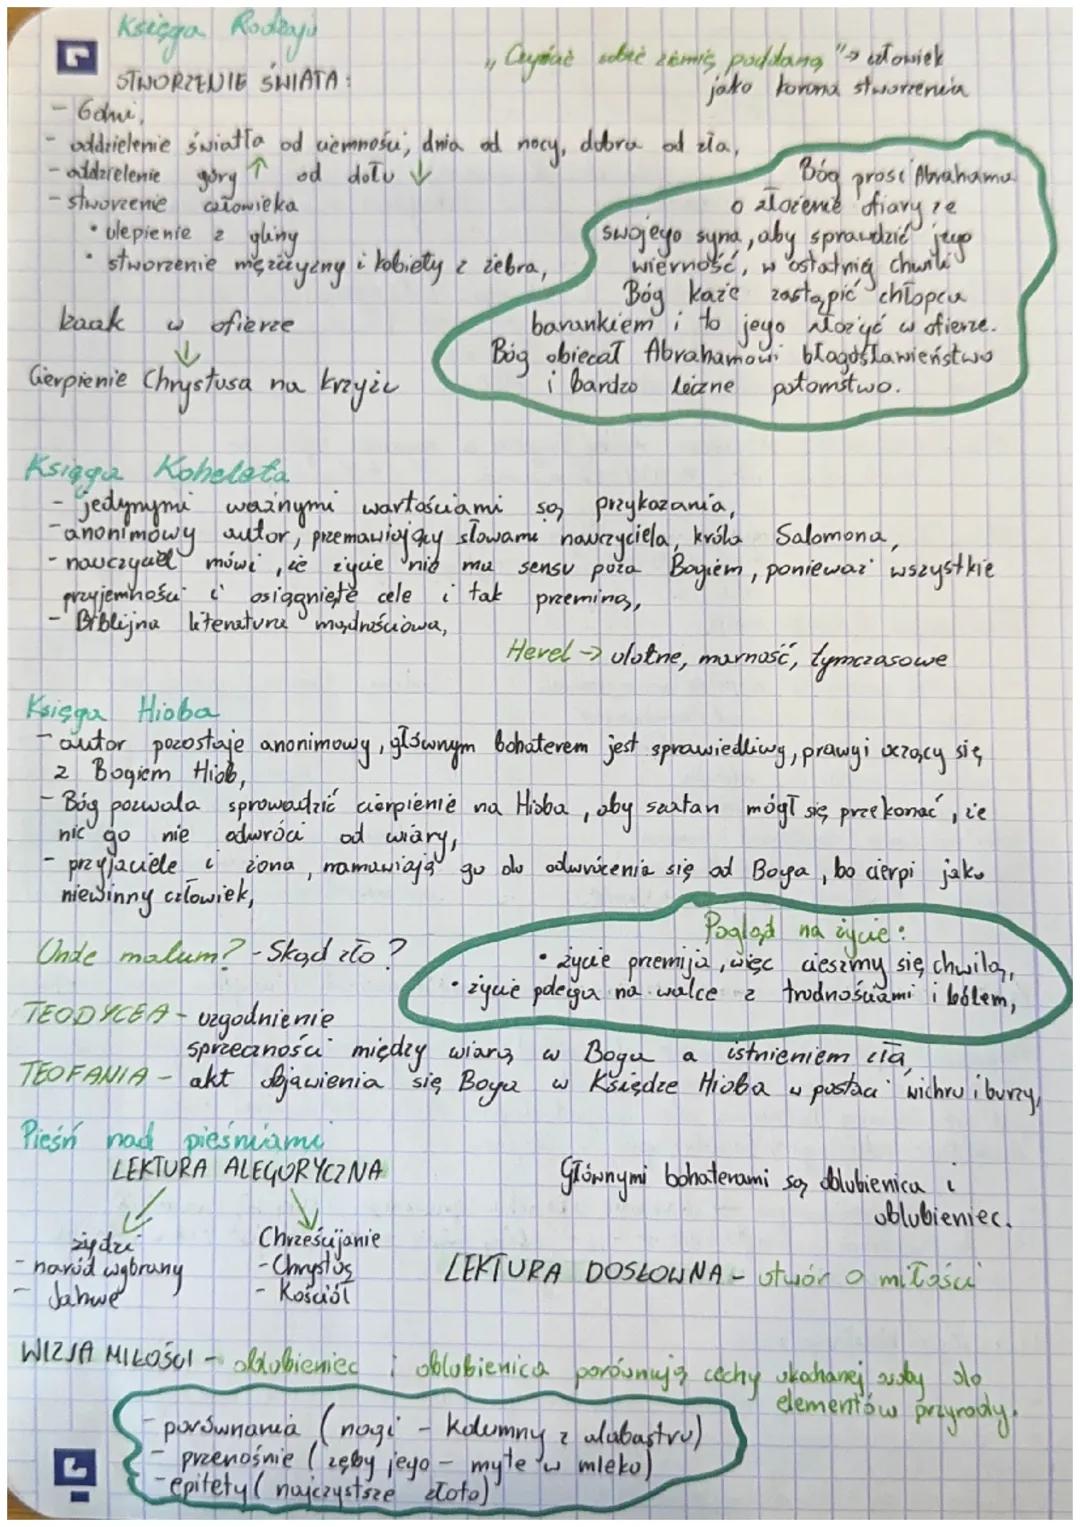 Księga Rodzaju
STWORZENIE ŚWIATA:
"Czyńcie sobie ziemię poddaną" → człowiek
jako korona stworzenia
- 6 dni,
- oddzielenie światła od ciemności, dnia od nocy, dobra od zła,
- oddzielenie góry ↑ od dołu ↓
- stworzenie człowieka
• ulepienie z gliny
• stworzenie mężczyzny i kobiety z żebra,
Bóg prosi Abrahama
o złożenie ofiary ze
swojego syna, aby sprawdzić jego
wierność, w ostatniej chwili
Bóg każe zastąpić chłopca
barankiem i to jego złożyć w ofierze.
Bóg obiecał Abrahamowi błagosławieństwo
i bardzo liczne potomstwo.
Izaak w ofierze
↓
Cierpienie Chrystusa na krzyżu
Księga Koheleta
- jedynymi ważnymi wartościami są przykazania,
- anonimowy autor, przemawiający słowami nauczyciela, króla Salomona,
- nauczyciel mówi, że życie nie ma sensu poza Bogiem, ponieważ wszystkie
przyjemności i osiągnięte cele i tak przeminą,
- Biblijna literatura mądrościowa,
Hevel → ulotne, marność, tymczasowe
Księga Hioba
- autor pozostaje anonimowy, głównym bohaterem jest sprawiedliwy, prawy i liczący się
z Bogiem Hiob,
- Bóg pozwala sprowadzić cierpienie na Hioba, aby szatan mógł się przekonać, że
nic go nie odwróci od wiary,
- przyjaciele i żona, namawiają go do odwrócenia się od Boga, bo cierpi jako
niewinny człowiek,
Unde malum? - Skąd zło?
Pogląd na życie:
• życie przemija, więc cieszmy się chwilą,
• życie polega na walce z trudnościami i bólem,
TEODYCEA - uzgodnienie
sprzeczności między wiarą w Boga a istnieniem zła,
TEOFANIA - akt objawienia się Boga w Księdze Hioba w postaci wichru i burzy,
Pieśń nad pieśniami
LEKTURA ALEGORYCZNA
Głównymi bohaterami są oblubienica i
oblubieniec.
żydzi
- naród wybrany
- Jahwe
Chrześcijanie
- Chrystus
- Kościół
LEKTURA DOSŁOWNA - utwór o miłości
WIZJA MIŁOŚCI - oblubieniec i oblubienica porównują cechy ukochanej osoby do
elementów przyrody.
- porównania (nogi - kolumny z alabastru)
- przenośnie (zęby jego - myte w mleko)
- epitety (najczystsze złoto)